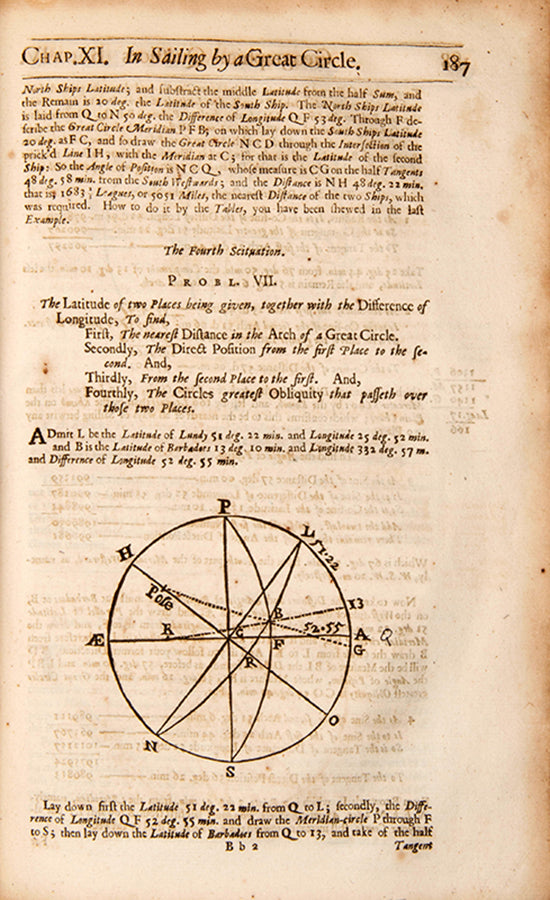 CHAP. XI. In Sailing by a Great Circle. 187
North Ships Latitude; and substract the middle Latitude from the half Sum, and
the Remain is 20 deg. the Latitude of the South Ship. The North Ships Latitude
is laid from Q to N 50 deg. the Difference of Longitude Q F 53 deg. Through F de-
scribe the Great Circle Meridian P F B; on which lay down the South Ships Latitude
20 deg. as F C, and so draw the Great Circle N C D through the Intersection of the
prick'd Line I H, with the Meridian at C; for that is the Latitude of the second
Ship: So the Angle of Position is N C Q, whose measure is C G on the half Tangents
48 deg. 58 min. from the South Westwards; and the Distance is N H 48 deg. 22 min.
that is, 1683 Leagues, or 5051 Miles, the nearest Distance of the two Ships, which
was required. How to do it by the Tables, you have been shewed in the last
Example.
The Fourth Scituation.
PROBL. VII.
The Latitude of two Places being given, together with the Difference of
Longitude, To find,
First, The nearest Distance in the Arch of a Great Circle.
Secondly, The Direct Position from the first Place to the se-
cond. And,
Thirdly, From the second Place to the first. And,
Fourthly, The Circles greatest Obliquity that passeth over
those two Places.
ADmit L be the Latitude of Lundy 51 deg. 22 min. and Longitude 25 deg. 52 min.
and B is the Latitude of Barbadoes 13 deg. 10 min. and Longitude 332 deg. 57 m.
and Difference of Longitude 52 deg. 55 min.
P
L 51.22
H
Pole
13
B
R
C
52.55
Æ
F
A Q
G
R
O
N
S
Lay down first the Latitude 51 deg. 22 min. from Q to L; secondly, the Diffe-
rence of Longitude Q F 52 deg. 55 min. and draw the Meridian-circle P through F
to S; then lay down the Latitude of Barbadoes from Q to 13, and take of the half
B b 2 Tangent